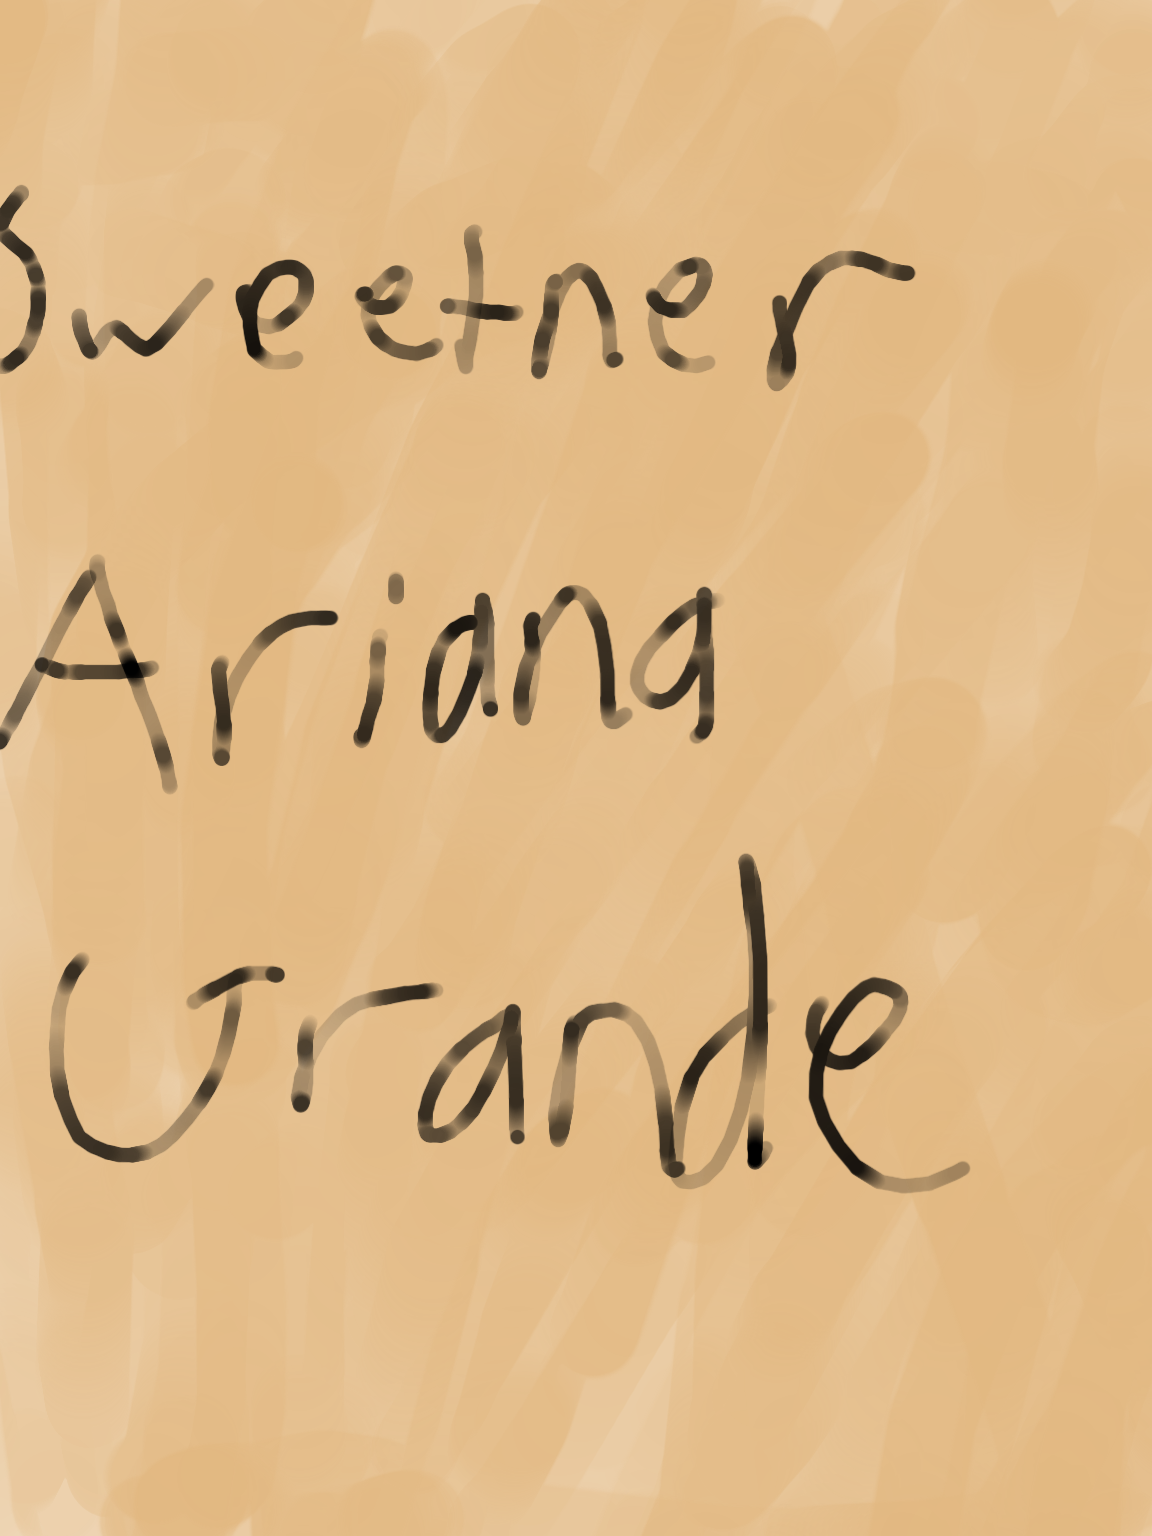 Sweetner
Ariana
Grande